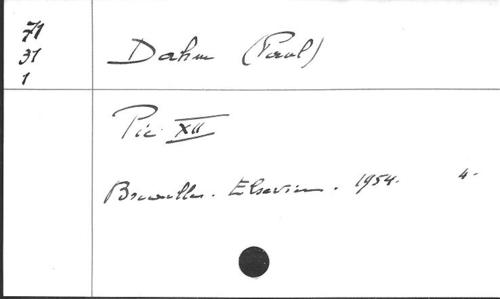 71
31
1
Dahm (Paul)
Pie XII
Bruxelles. Elsevier. 1954. 4-